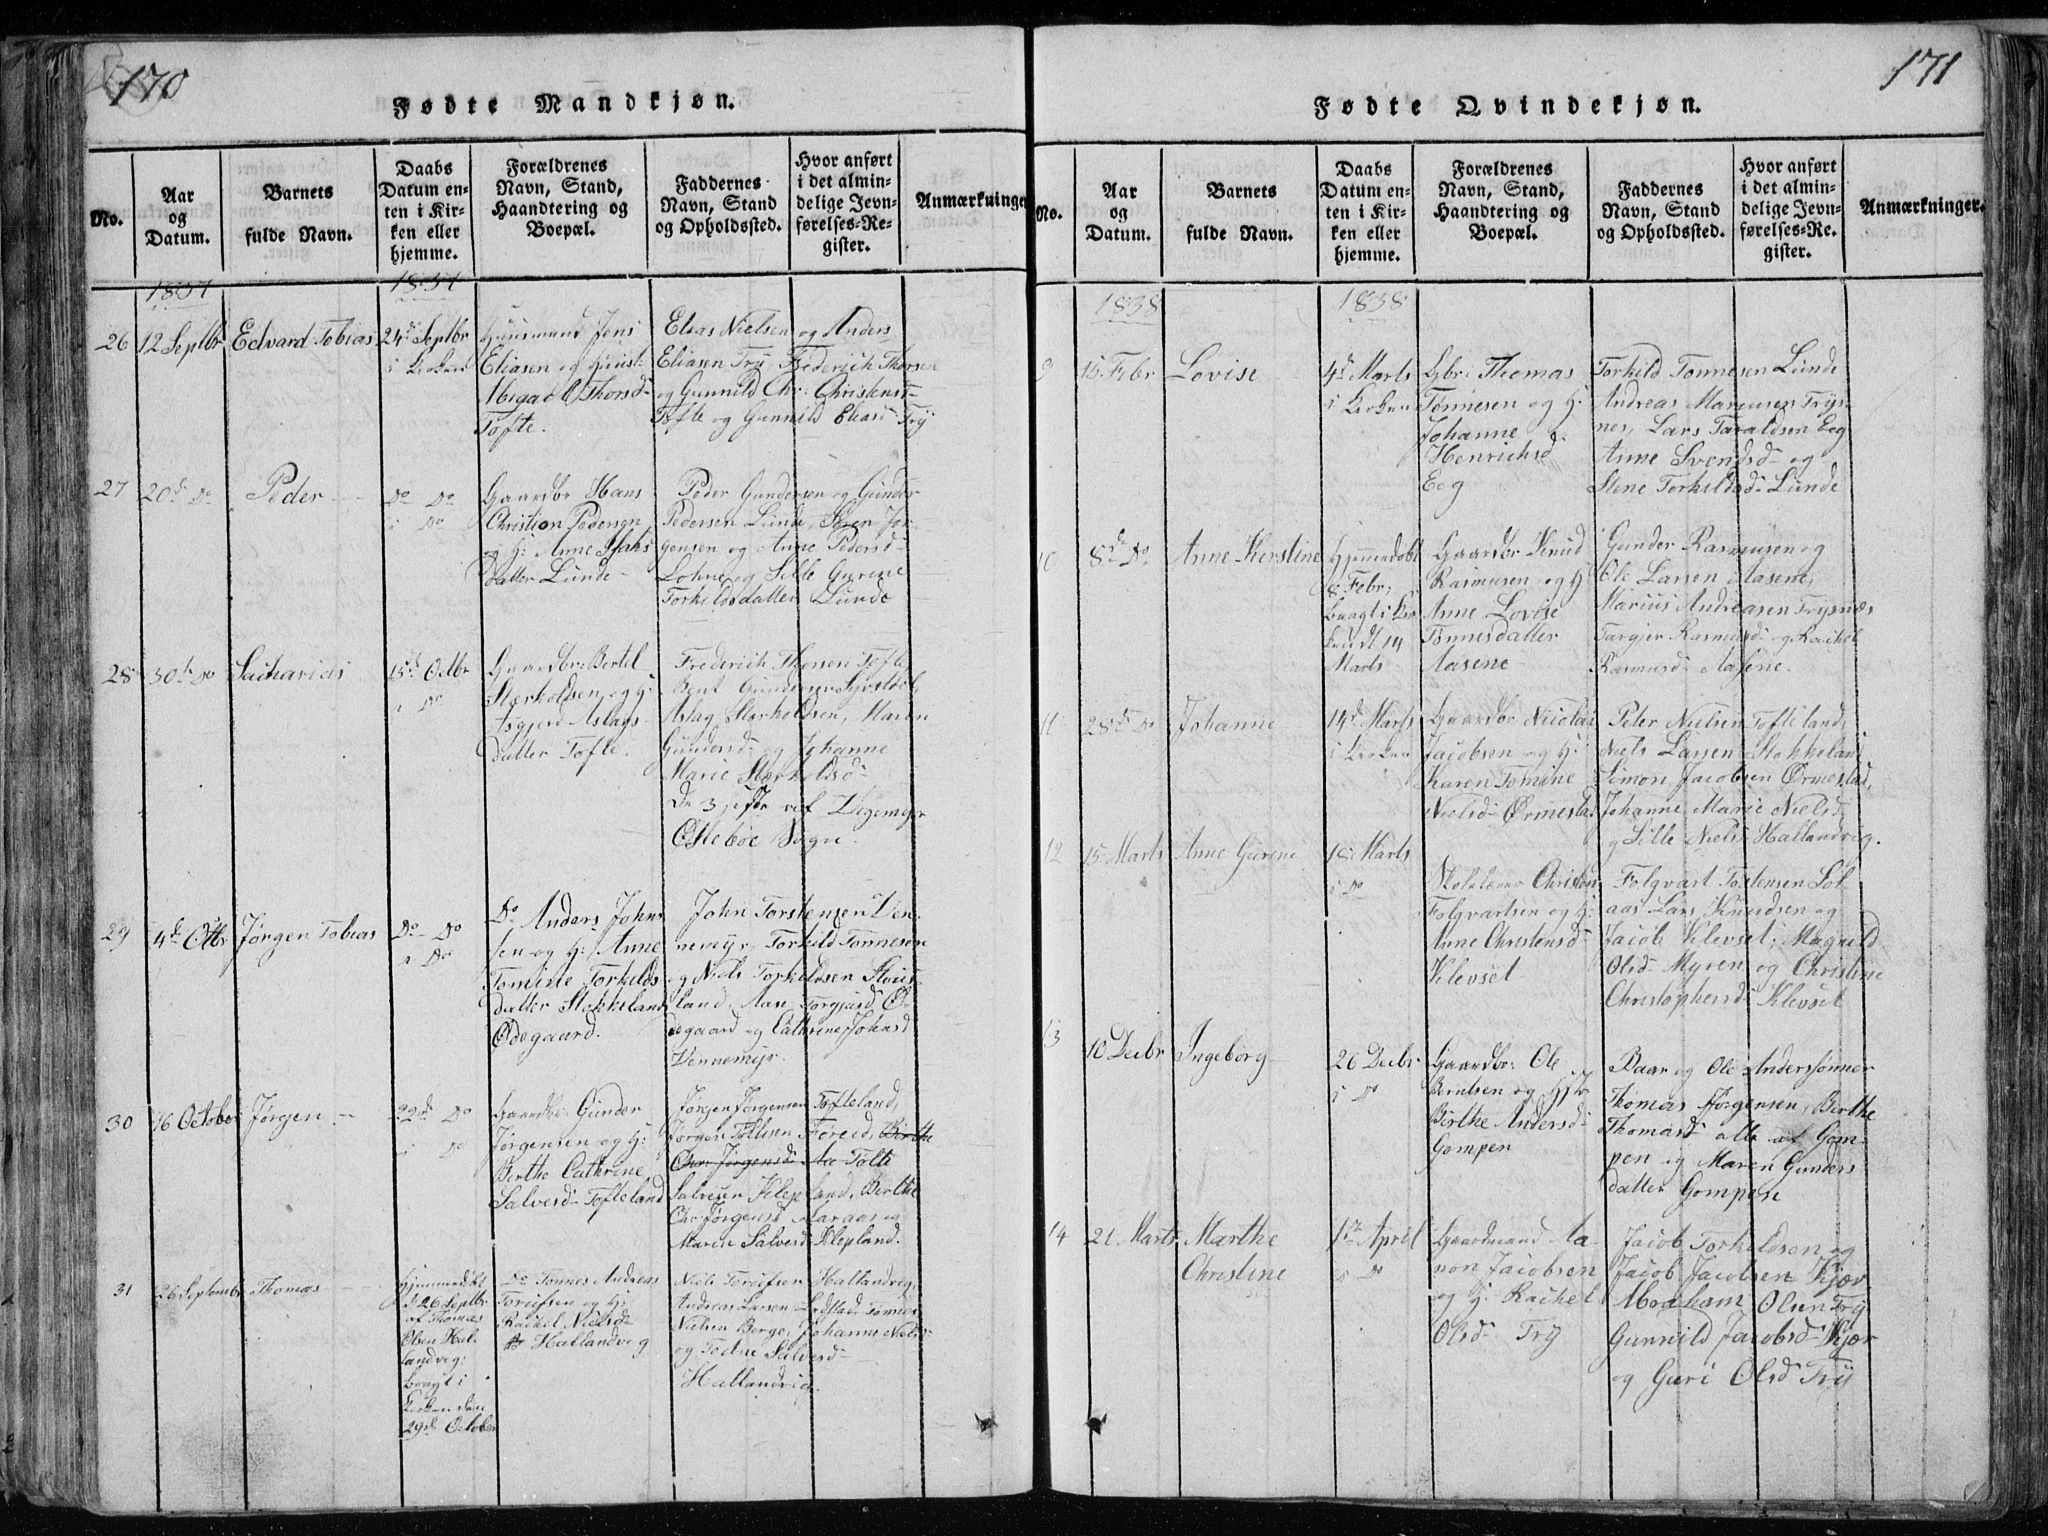 170
Fødte Mandkjøn.
No.
Aar
og
Datum.
Barnets
fulde Navn.
Daabs
Datum en-
ten i Kir-
ken eller
hjemme.
Forældrenes
Navn, Stand,
Haandtering og
Boepæl.
Faddernes
Navn, Stand
og Opholdssted.
Hvor anført
i det almin-
delige Jevn-
førelses-Re-
gister.
Anmærkninger
1837
1837
26
12 Septbr
Edvard Tobias
24de Septbr
i Kirken
Huusmand Jens
Eliasen og Hust:
Abigael Thorsd-
Tofte.
Elias Nielsen og Anders
Eliasen Try, Frederich Thorsen
og Gunnild Chr: Christensd-
Tofte og Gunnild Eliasd- Try
27
20de Do
Peder
Do Do
i Do
Gaardbr Hans
Christian Pedersen
og H: Anne Isaks
datter Lunde-
Peder Gundersen og Gunder
Pedersen Lunde, Søren Jør-
gensen og Anne Pedersd-
Lohne og Sille Gurene
Torkildsdatter Lunde
28
30te Do
Sacharias
15de Octbr
i Do
Gaardbr: Bertel
Størkoldsen og H:
Asgjerd Aslags-
datter Tofte.
Frederich Thorsen Tofte
Bent Gundersen
Aslag Størkoldsen, Maren
Gundersd- og Johanne
Marie Størkoldsd-
De 3 af
Sogn.
29
4de Octbr
Jørgen Tobias
Do Do
i Do
Do Anders Johns
sen og H: Anne
Tomine Torkilds
datter Stokkeland
Ødegaard.
John Torstensen Ven-
nemyr, Torkild Tonnesen
og Niels Torkildsen
land, Aase Torgjusd- Ø-
degaard og Cathrine Johnsd
Vennemyr.
30
16 October
Jørgen
29de Do
i Do
Gaardbr: Gunder
Jørgensen og H:
Berthe Cathrine
Salvesd- Tofteland
Jørgen Jørgensen Tofteland,
Jørgen Tollisen Foreid, Birthe
Chr: Jørgensd- Aa Tolte
Salvesen Klepland, Birthe
Chr: Jørgensd- Aaraas og
Maren Salvesd- Klepland.
31
26 Septembr
Thomas
Hjemmedøbt
d 26 Septbr
af Thomas
Olsen Hal-
landvig:
bragt i
Kirken den
29de October
Do Tonnes Andreas
Toriifsen og H:
Rachel Nielsd-
Hallandvig
Niels Toriifsen Hallandvig,
Andreas Larsen Lastad, Tonnes
Nielsen Berge, Johanne Nielsd-
og Todne Salvesd-
Hallandvig.
171
Fødte Qvindekjøn.
No.
Aar
og
Datum.
Barnets
fulde Navn.
Daabs
Datum en-
ten i Kir-
ken eller
hjemme.
Forældrenes
Navn, Stand,
Haandtering og
Boepæl.
Faddernes
Navn, Stand
og Opholdssted.
Hvor anført
i det almin-
delige Jevn-
førelses-Re-
gister.
Anmærkninger.
1838
1838
9
15 Febr
Lovise
4de Marts
i Kirken
Gbr: Thomas
Tønnesen og H:
Johanne
Henrichsd-
Eeg
Torkild Tonnesen Lunde
Andreas Mariusen Trys-
nes, Lars Taraldsen Eeg
Anne Svendsd- og
Stene Torkildsd- Lunde
10
8de Do
Anne Kerstine
Hjemmedøbt
8 Febr:
bragt i Kir
ken d 14
Marts
Gaardbr Knud
Rasmusen og H
Anne Lovise
Tønnesdatter
Aasene
Gunder Rasmusen og
Ole Larsen Aasene,
Marius Andreasen Trysnæs
Targjer Rasmusd- og Rachel
Rasmusd- Aasene.
11
28de Do
Johanne
14de Marts
i Kirken
Gaardbr Nicolai
Jacobsen og H:
Karen Tomine
Nielsd- Ørmestad
Peter Nielsen Tofteland,
Niels Larsen Stokkeland
Simon Jacobsen Ørmestad,
Johanne Marie Nielsd-
og Sille Nielsd- Hallandvig.
12
15 Marts
Anne Gurene
18 Marts
i Do
Skolelærer Christen
Folqvartsen og H:
Anne Christensd-
Klevset
Folqvart Tostensen Løl-
aas Lars Knudsen og
Jacob Klevset, Magnild
Olsd- Myren og Christine
Christophersd- Klevset
13
10 Decbr
Ingeborg
26 Decbr
i Do
Gaardbr: Ole
Berntsen og Hstr
Birthe Andersd-
Gompen
Baar og Ole Anderssønner
Thomas Jørgensen, Berthe
Thomasd- alle af Gom-
pen og Maren Gunders
datter Gompen
14
21 Marts
Marthe
Christine
1ste April
i Do
Gaardmand Aa-
non Jacobsen
og H: Rachel
Olsd- Try
Jacob Torkildsen og
Jacob Jacobsen Kjær
Abraham Olsen Try
Gunnild Jacobsd- Kjær
og Guri Olsd Try